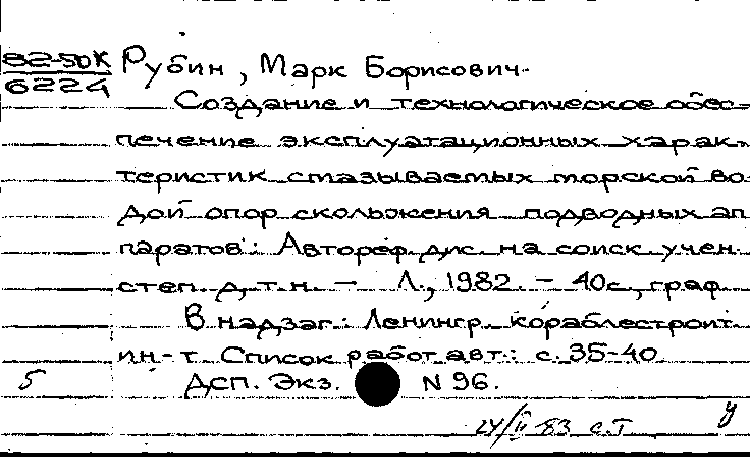 82-5DK Рубин, Марк Борисович.
6224
Создание и технологическое обес-
печение эксплуатационных харак-
теристик смазываемых морской во-
дой опор скольжения подводных ап-
паратов: Автореф. дис. на соиск. учен.
степ. д.т.н. — Л., 1982. — 40с., граф
В надзаг.: Ленингр. кораблестроит.
ин-т. Список работ авт.: с. 35-40.
5 ДСП. Экз. N 96.
24/II 83 с.Т у